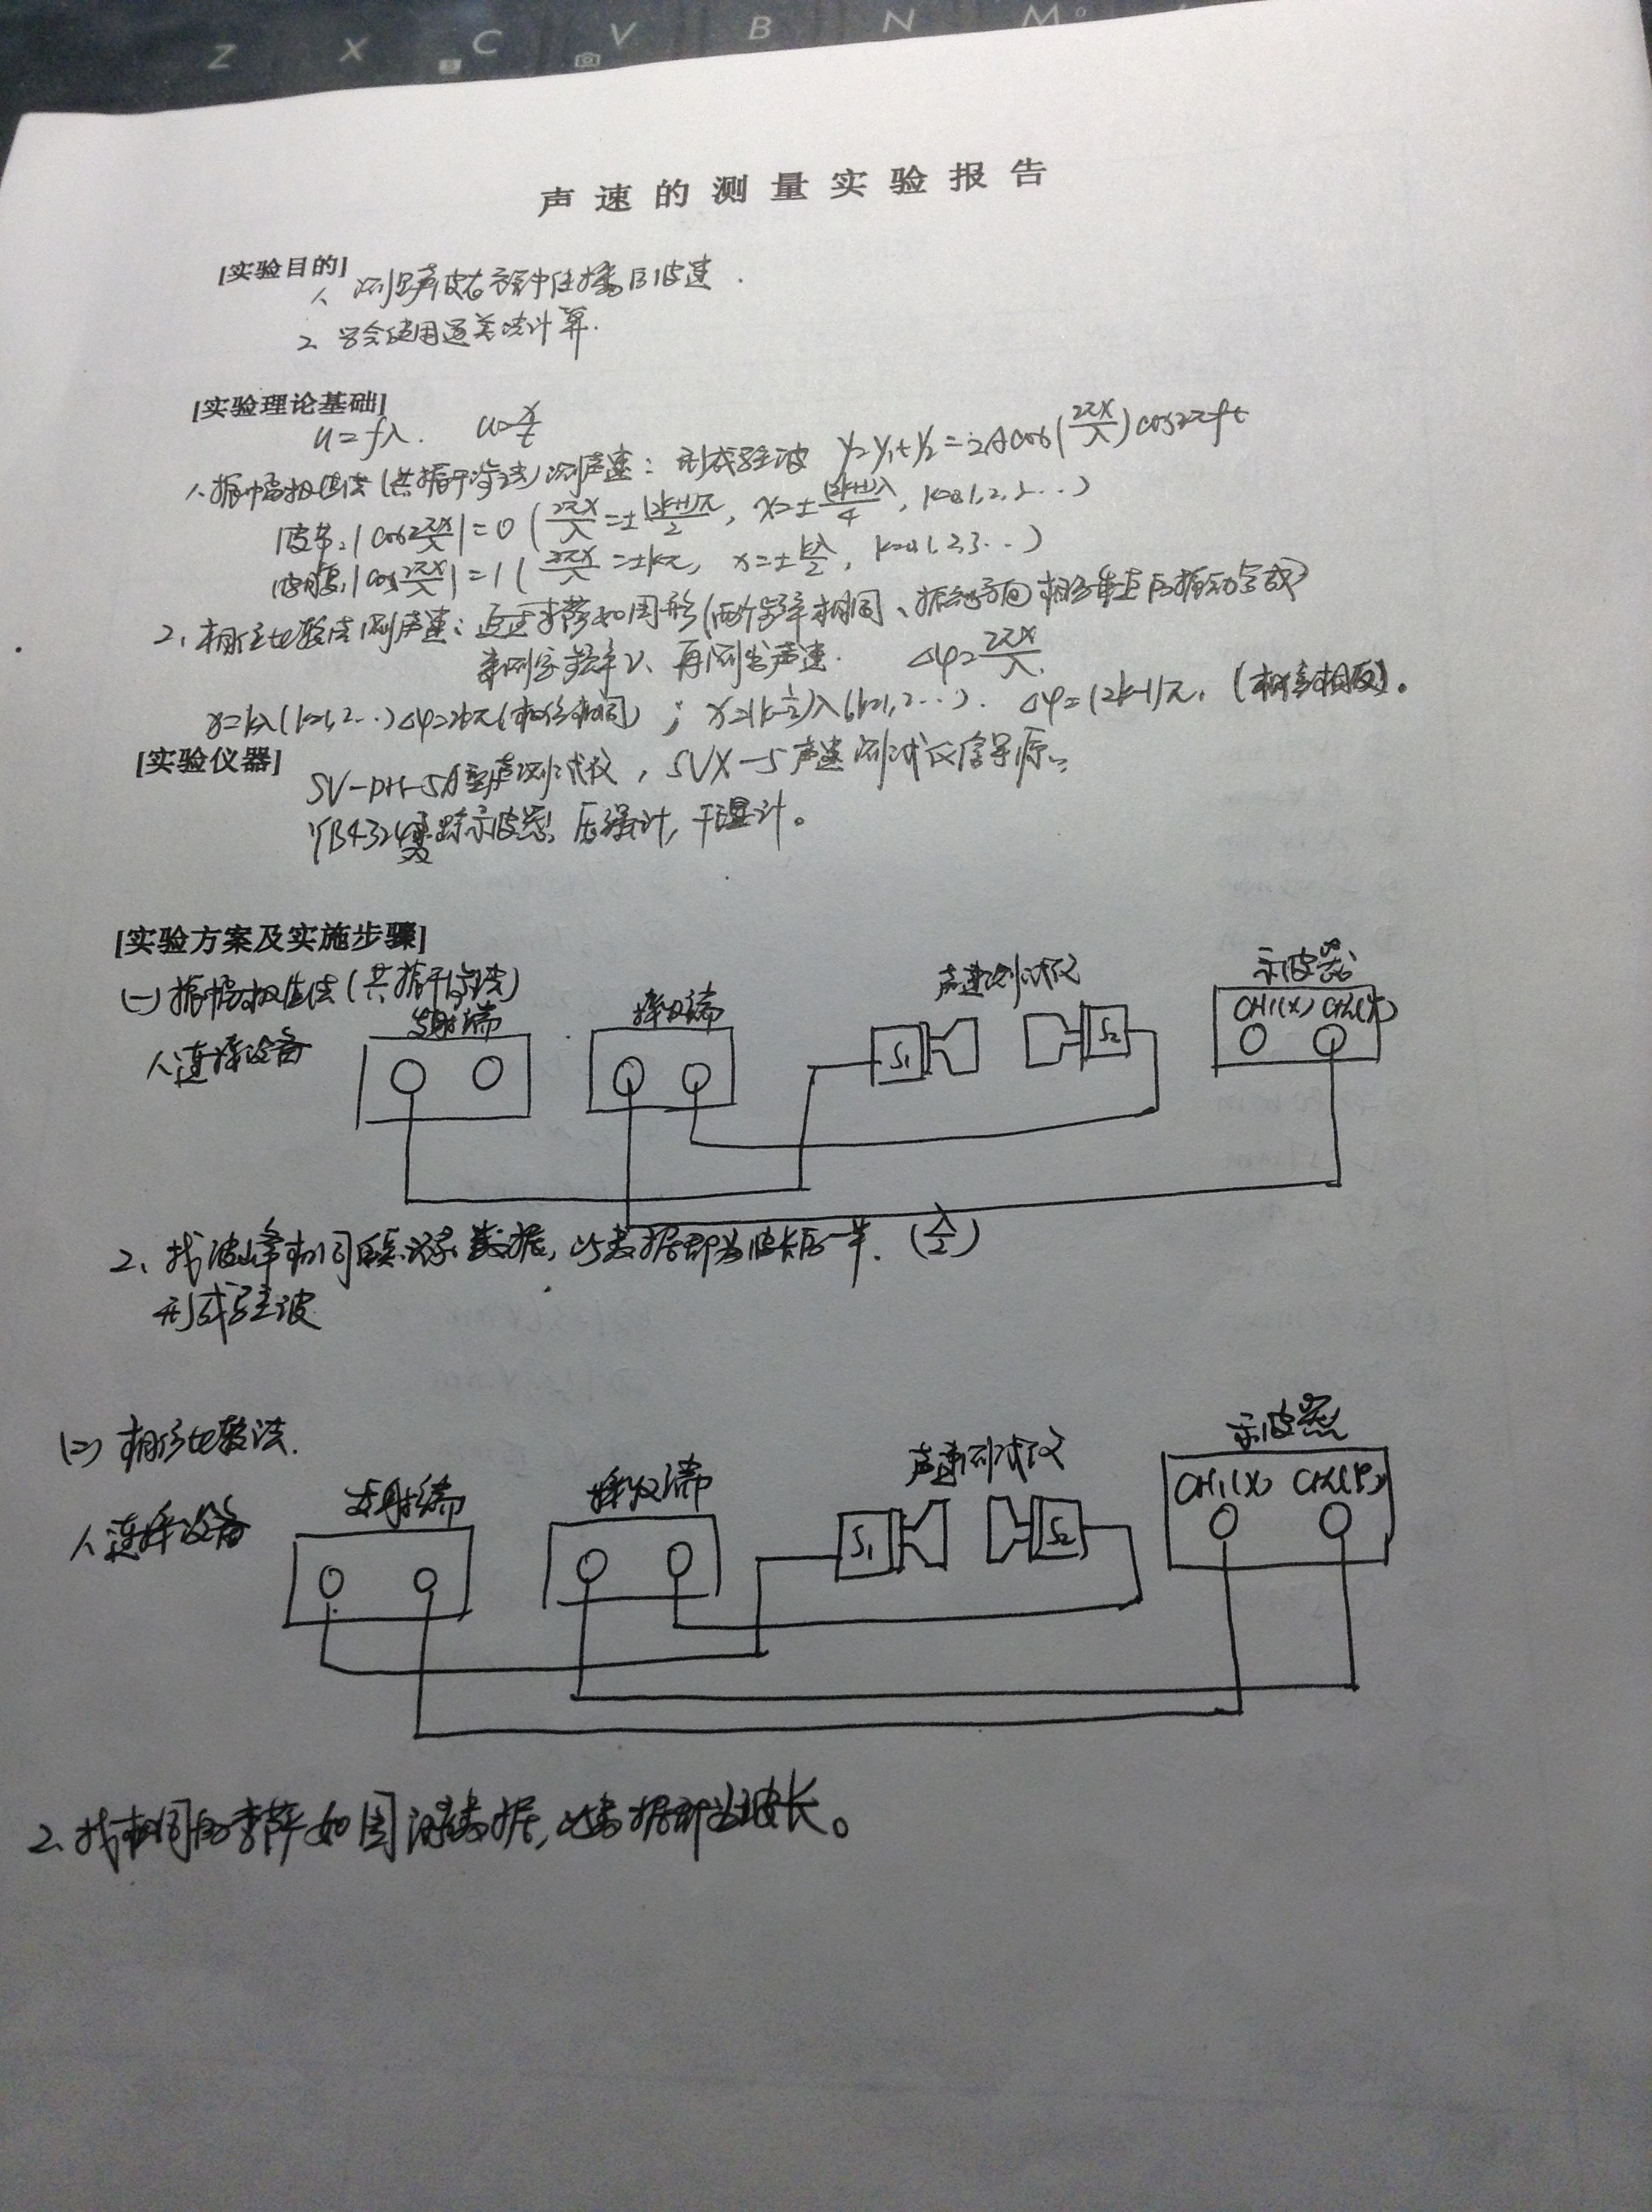 Z X C V B N M
声速的测量实验报告
[实验目的]
1、测定声波在空气中传播的波速.
2、学会使用逐差法计算.
[实验理论基础]
u=fλ. u=x/t
1、振幅极值法(共振干涉法)测声速: 形成驻波 y=y₁+y₂=2Acos(2πx/λ)cos2πft
波节:|cos2πx/λ|=0 (2πx/λ=±(2k+1)π/2, x=±(2k+1)λ/4, k=0,1,2,3…)
波腹:|cos2πx/λ|=1 (2πx/λ=±kπ, x=±kλ/2, k=0,1,2,3…)
2、相位比较法测声速: 通过李萨如图形(两个频率相同、振动方向相互垂直的振动合成)
来测定频率ν、再测出声速. Δφ=2πx/λ.
x=kλ(k=1,2…)Δφ=2kπ(相位相同); x=(k-1/2)λ(k=1,2…). Δφ=(2k-1)π. (相位相反).
[实验仪器]
SV-DH-5A型声速测试仪, SVX-5声速测试仪信号源、
YB4324双踪示波器, 压强计, 干湿计。
[实验方案及实施步骤]
(一)振幅极值法(共振干涉法)
1、连接设备
发射端 接收端 声速测试仪 示波器
S₁ S₂ CH1(X) CH2(Y)
2、找波峰相同的点,记录数据,此数据即为波长的一半. (λ/2)
形成驻波
(二)相位比较法.
1、连接设备
发射端 接收端 声速测试仪 示波器
S₁ S₂ CH1(X) CH2(Y)
2、找相同的李萨如图 记录数据,此数据即为波长。